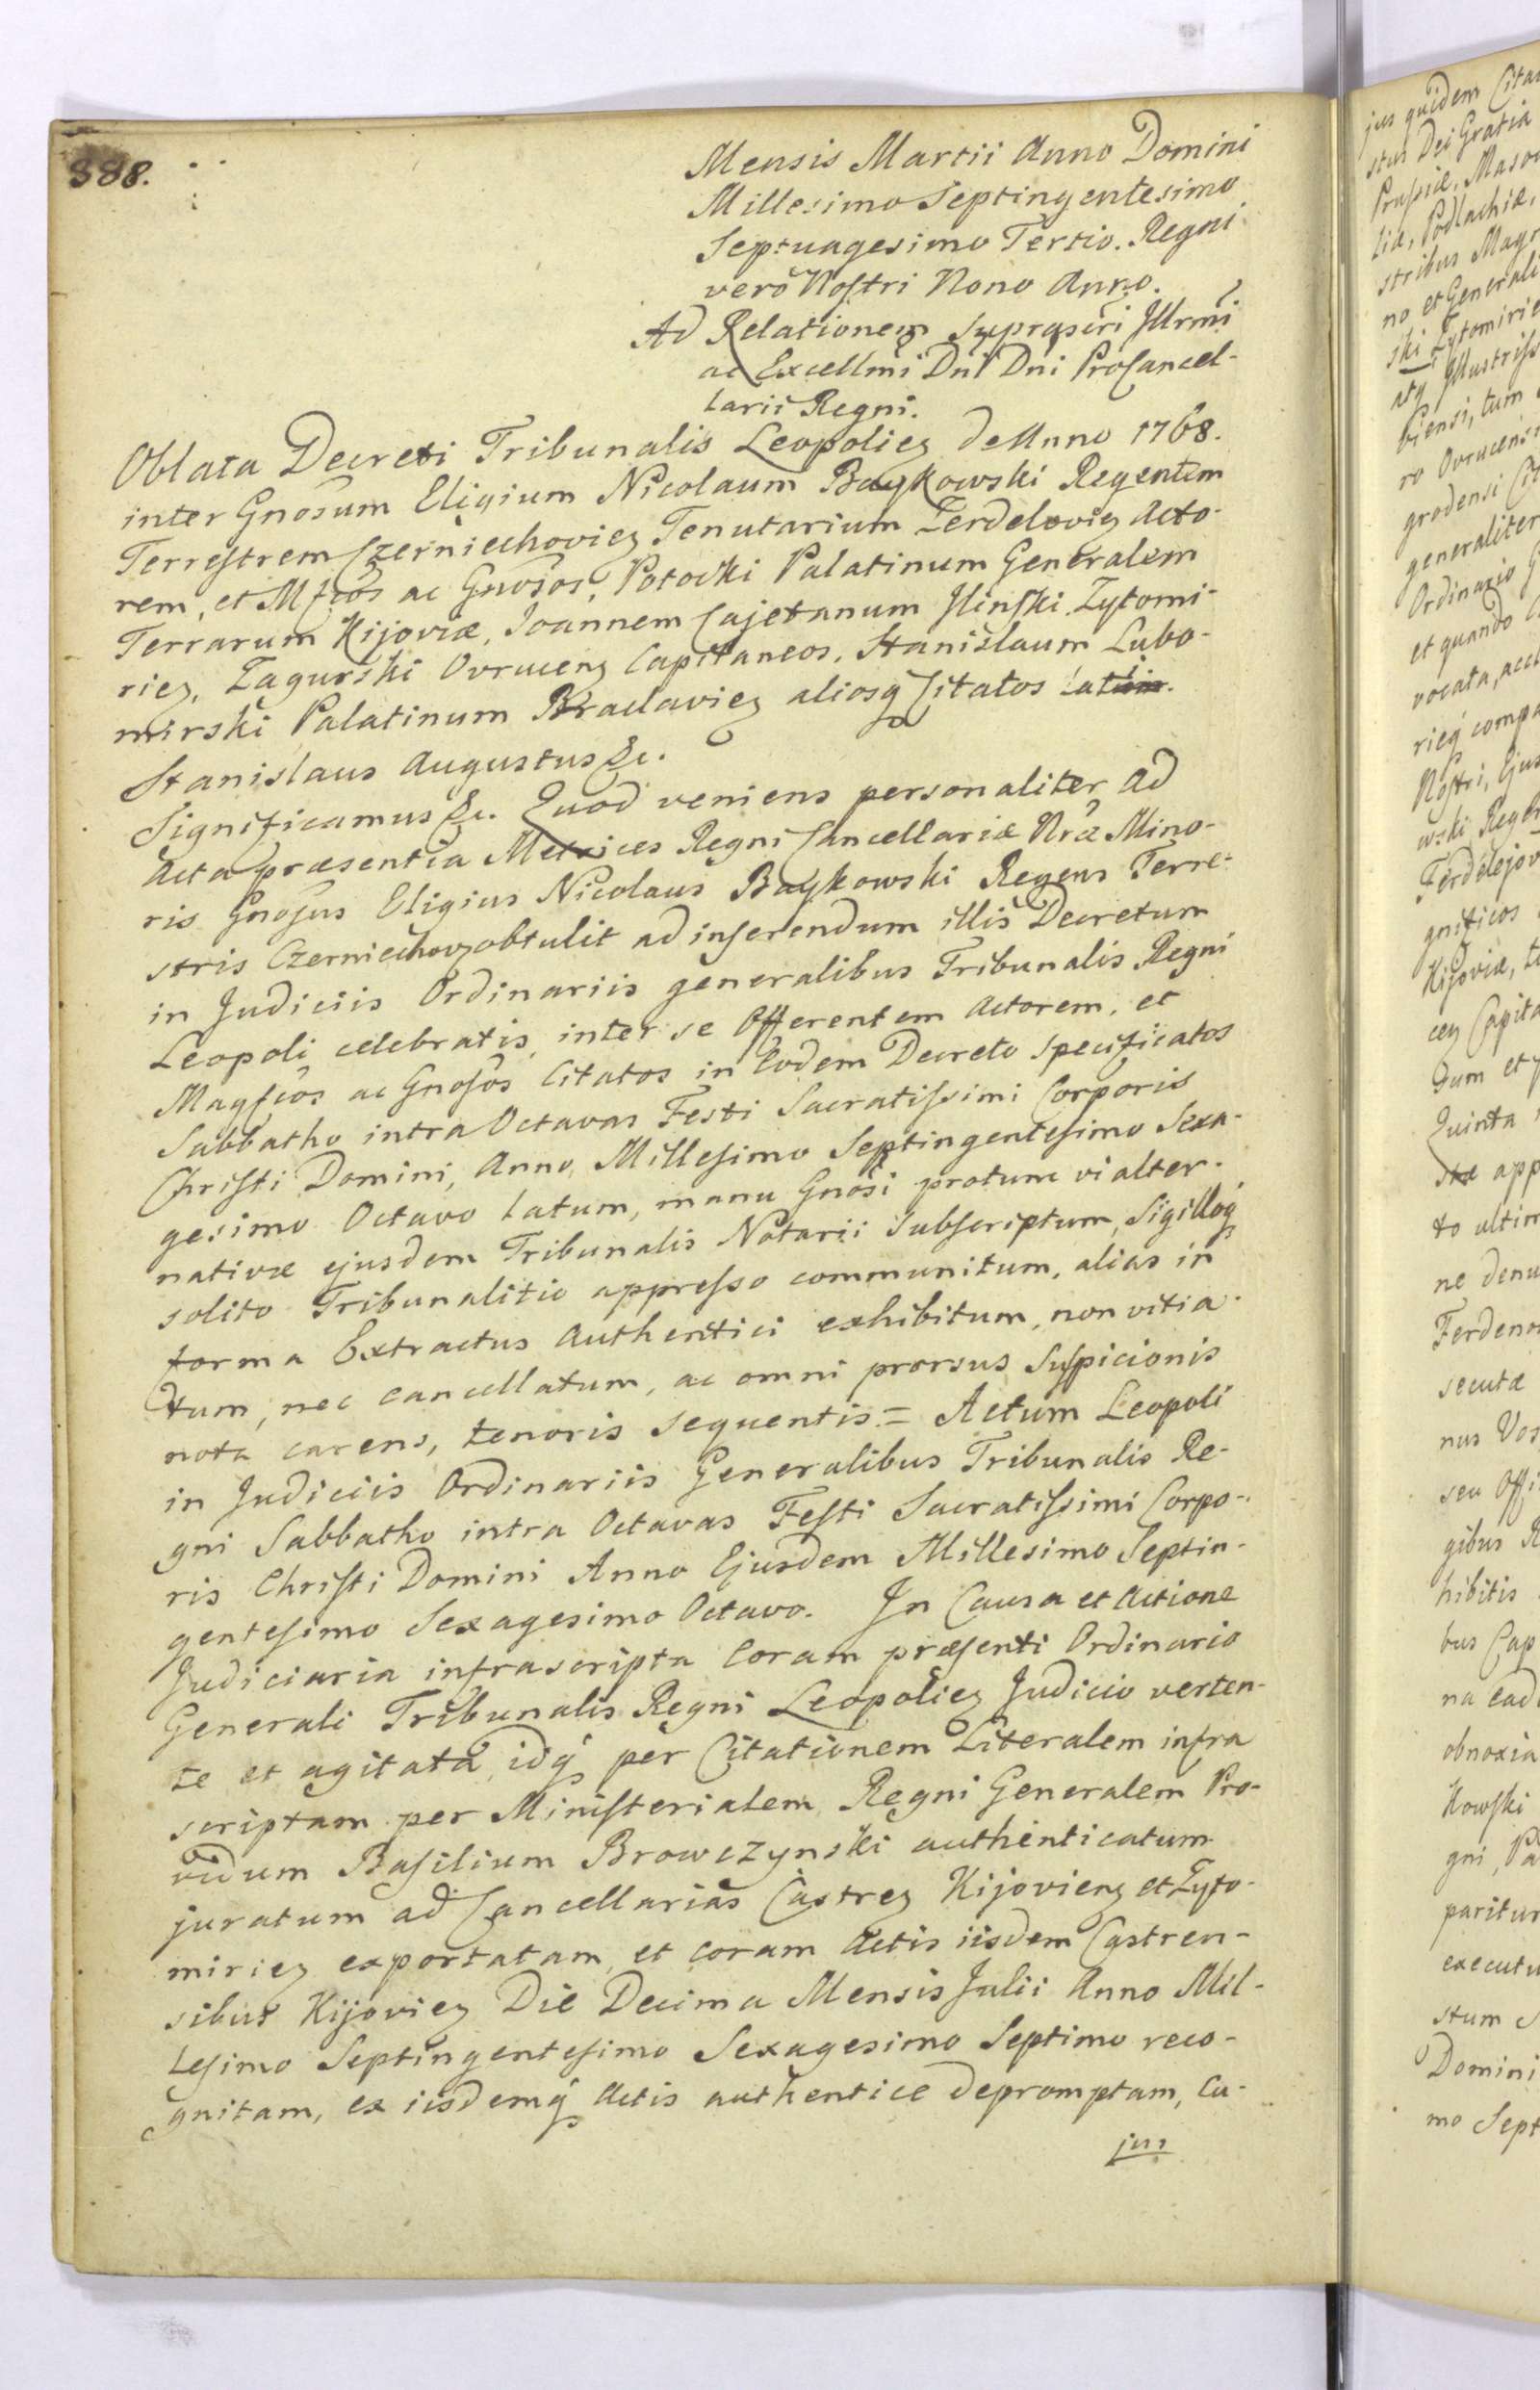 388.
Mensis Martii Anno Domini
Millesimo Septingentesimo
Septuagesimo Tertio. Regni
verò Nostri Nono Anno.
Ad Relationem suprascri Illrmi
ac Excellmi Dni Dni ProCancel-
larii Regni.
Oblata Decreti Tribunalis Leopoliez de Anno 1768.
inter Gnosum Eligium Nicolaum Baykowski Regentem
Terrestrem Czerniechoviez Tenutarium Ferdeloviz Acto-
rem, et Mfcos ac Gnosos, Potocki Palatinum Generalem
Terrarum Kijoviæ, Joannem Cajetanum Ilinski Zytomi-
riez, Zagurski Ovrucenz Capitaneos, Stanislaum Lubo-
mirski Palatinum Braclaviez aliosq Citatos
Stanislaus Augustus &c.
Significamus &c. Quod veniens personaliter ad
Acta præsentia Metrices Regni Cancellariæ Nræ Mino-
ris Gnosus Eligius Nicolaus Baykowski Regens Terre-
stris Czerniechovz obtulit ad inserendum illis Decretum
in Judiciis Ordinariis generalibus Tribunalis Regni
Leopoli celebratis, inter se Offerentem Actorem, et
Magfcos ac Gnosos Citatos in Eodem Decreto specificatos
Sabbatho intra Octavas Festi Sacratissimi Corporis
Christi Domini, Anno, Millesimo Septingentesimo Sexa-
gesimo Octavo latum, manu Gnosi protunc vi alter-
nativæ ejusdem Tribunalis Notarii subscriptum, Sigilloq
solito Tribunalitio appresso communitum, alias in
forma Extractus Authentici exhibitum, non vitia-
tum, nec cancellatum, ac omni prorsus suspicionis
nota carens, tenoris sequentis = Actum Leopoli
in Judiciis Ordinariis Generalibus Tribunalis Re-
gni Sabbatho intra Octavas Festi Sacratissimi Corpo-
ris Christi Domini Anno Ejusdem Millesimo Septin-
gentesimo Sexagesimo Octavo. In Causa et Actione
Judiciaria infrascripta Coram præsenti Ordinario
Generali Tribunalis Regni Leopoliez Judicio verten-
te et agitata, idq per Citationem Literalem infra
scriptam per Ministerialem Regni Generalem Pro-
vidum Basilium Browczynski authenticatum
juratum ad Cancellarias Castrez Kijovienz et Zyto-
miriez exportatam, et coram Actis iisdem Castren-
sibus Kijoviez Die Decima Mensis Julii Anno Mil-
lesimo Septingentesimo Sexagesimo Septimo reco-
gnitam, ex iisdemq Actis authentice depromptam, Cu-
jus
jus quidem Cita
stus Dei Gratia
Prussiæ, Maso
liæ, Podlachiæ,
stribus Mag
no et Generali
ski Zytomirie
atq Illustriss
viensi, tum
ro Ovrucens
grodensi Cit
generaliter
Ordinario G
et quando
vocata, acc
rieq comp
Nostri, Ejus
wski Rege
Ferdelejov
gnificos
Kijoviæ, t
cez Capita
dum et
Quinta
stæ app
to ultim
ne denu
Ferdeno
secutæ
nus Vos
seu Offi
gibus R
hibitis
bus Cap
na ead
obnoxia
kowski
gni, Pa
paritur
executu
stum
Domini
mo Sept